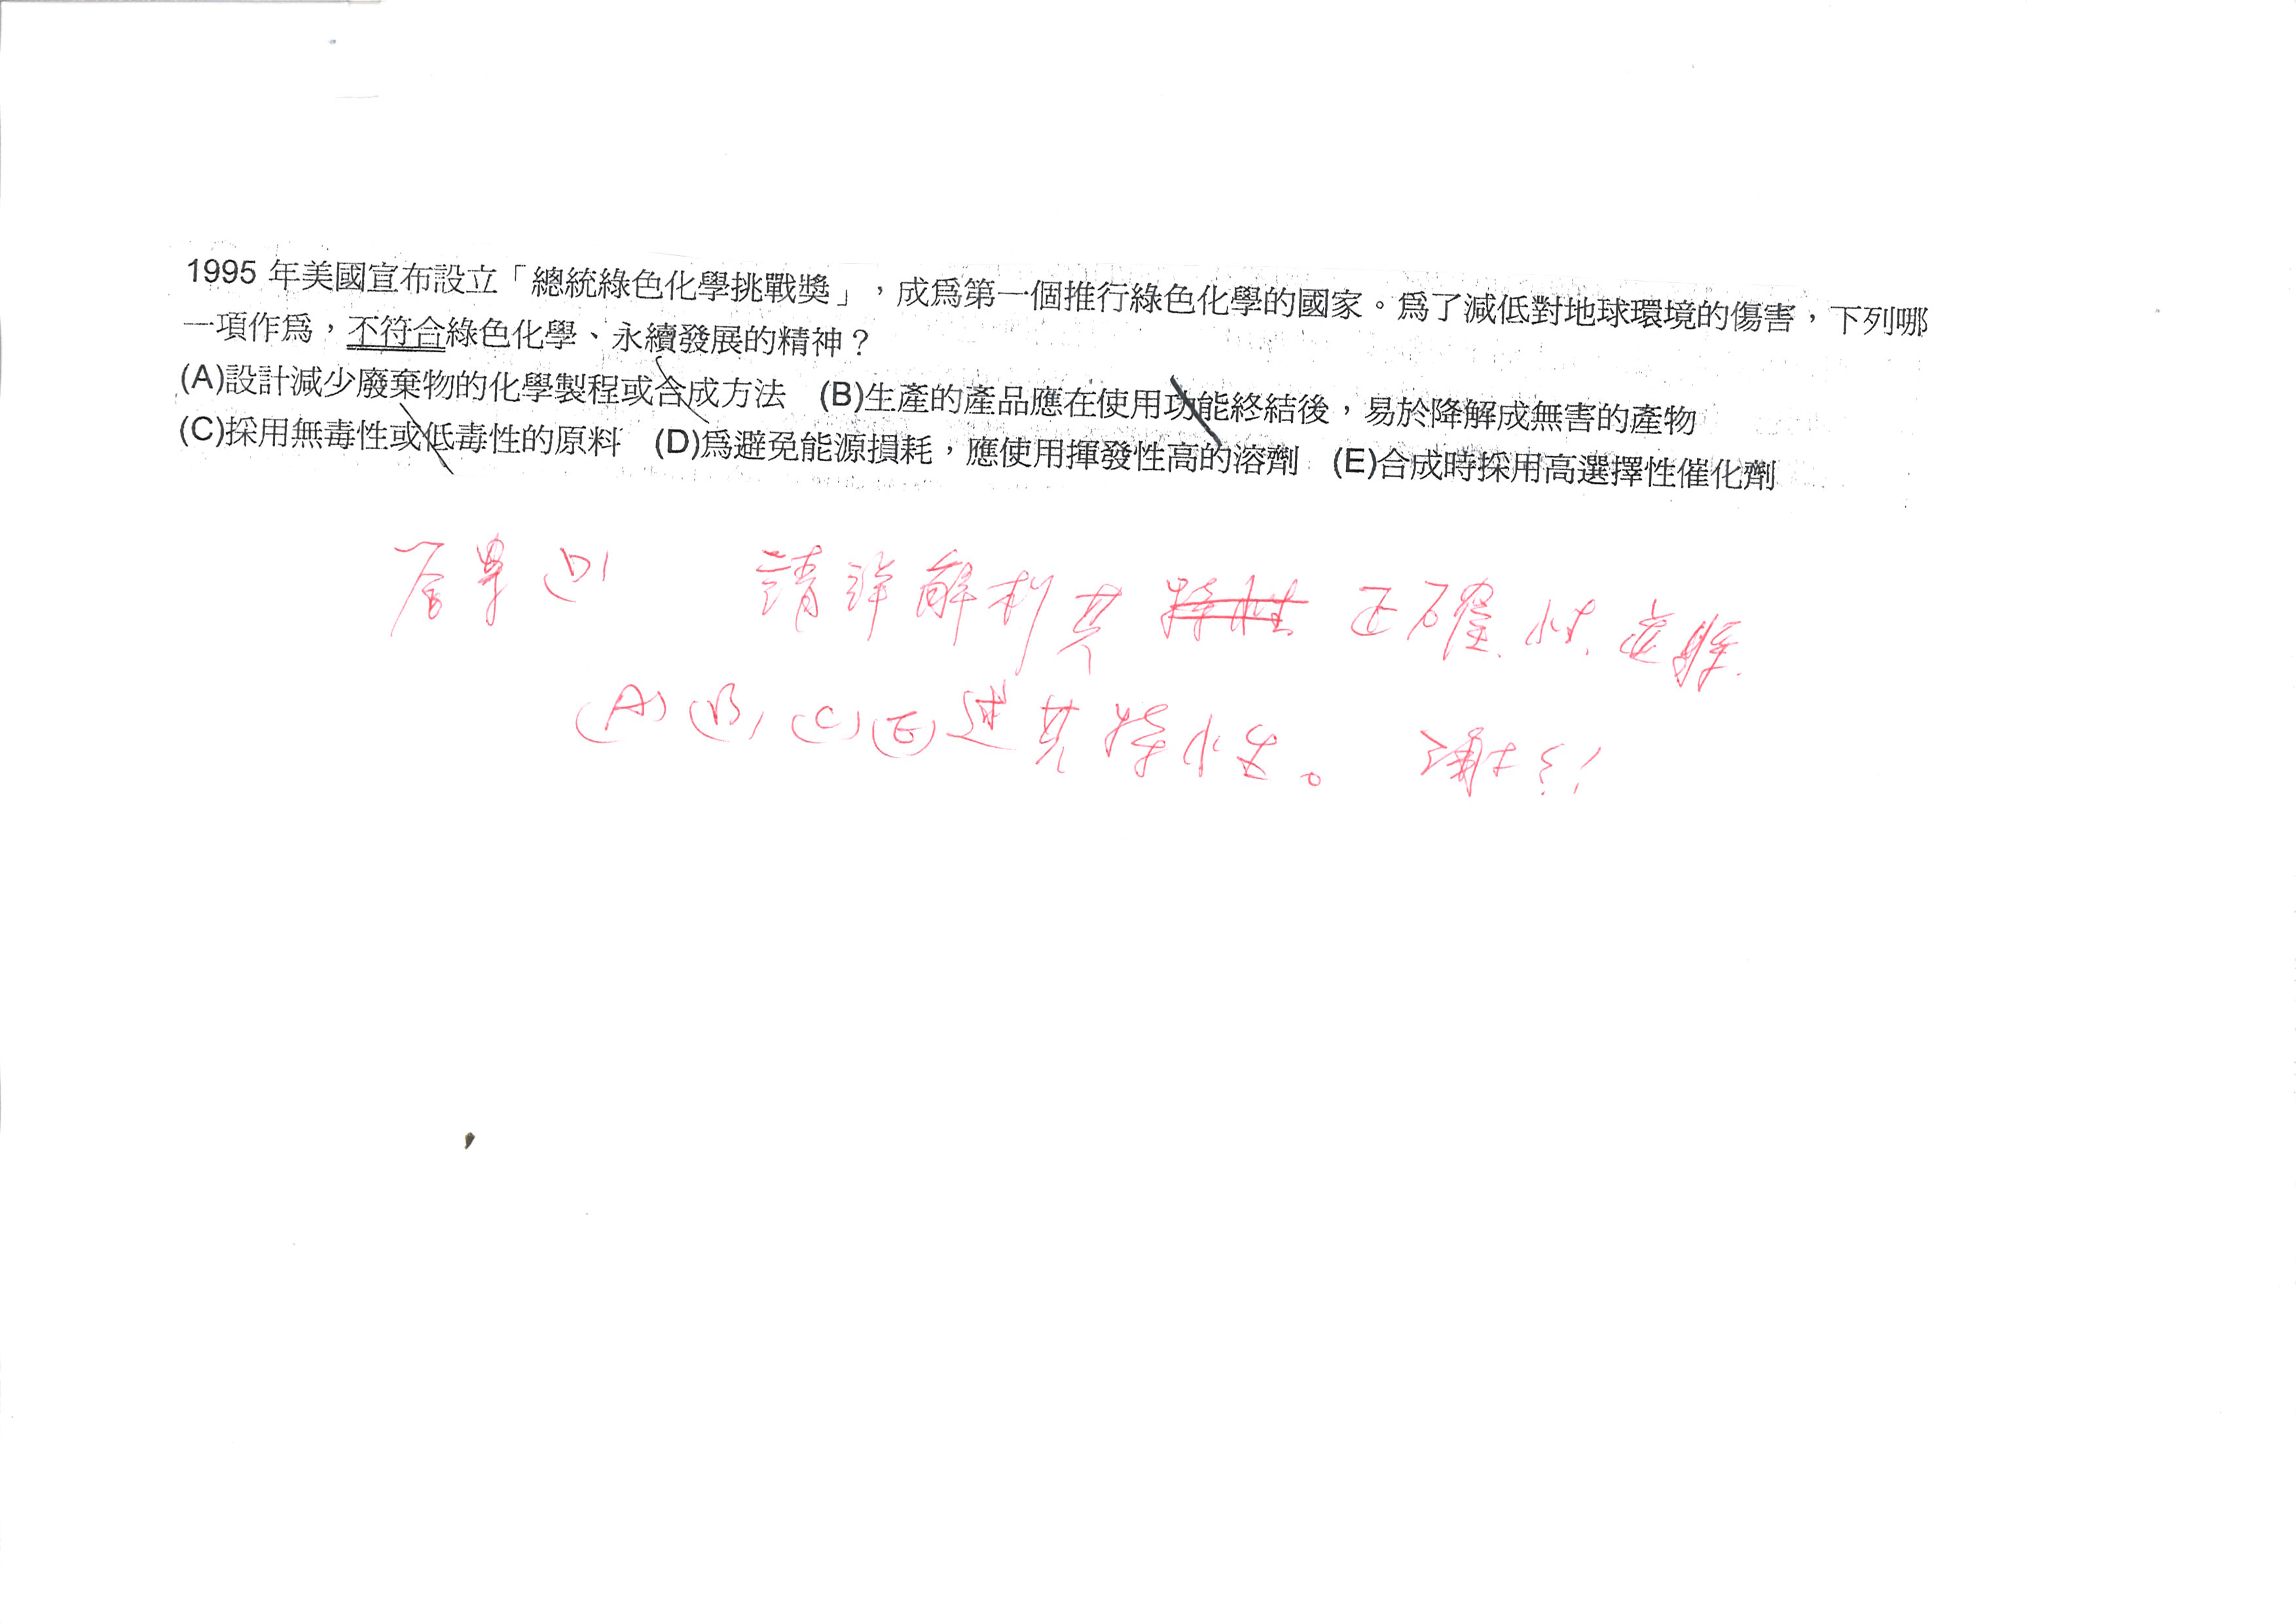 1995 年美國宣布設立「總統綠色化學挑戰獎」，成為第一個推行綠色化學的國家。為了減低對地球環境的傷害，下列哪
一項作為，不符合綠色化學、永續發展的精神？
(A)設計減少廢棄物的化學製程或合成方法 (B)生產的產品應在使用功能終結後，易於降解成無害的產物
(C)採用無毒性或低毒性的原料 (D)為避免能源損耗，應使用揮發性高的溶劑 (E)合成時採用高選擇性催化劑
答案 (D) 請詳解析其 特性 正確性
(A) (B) (C) (E) 述其特性。 謝謝